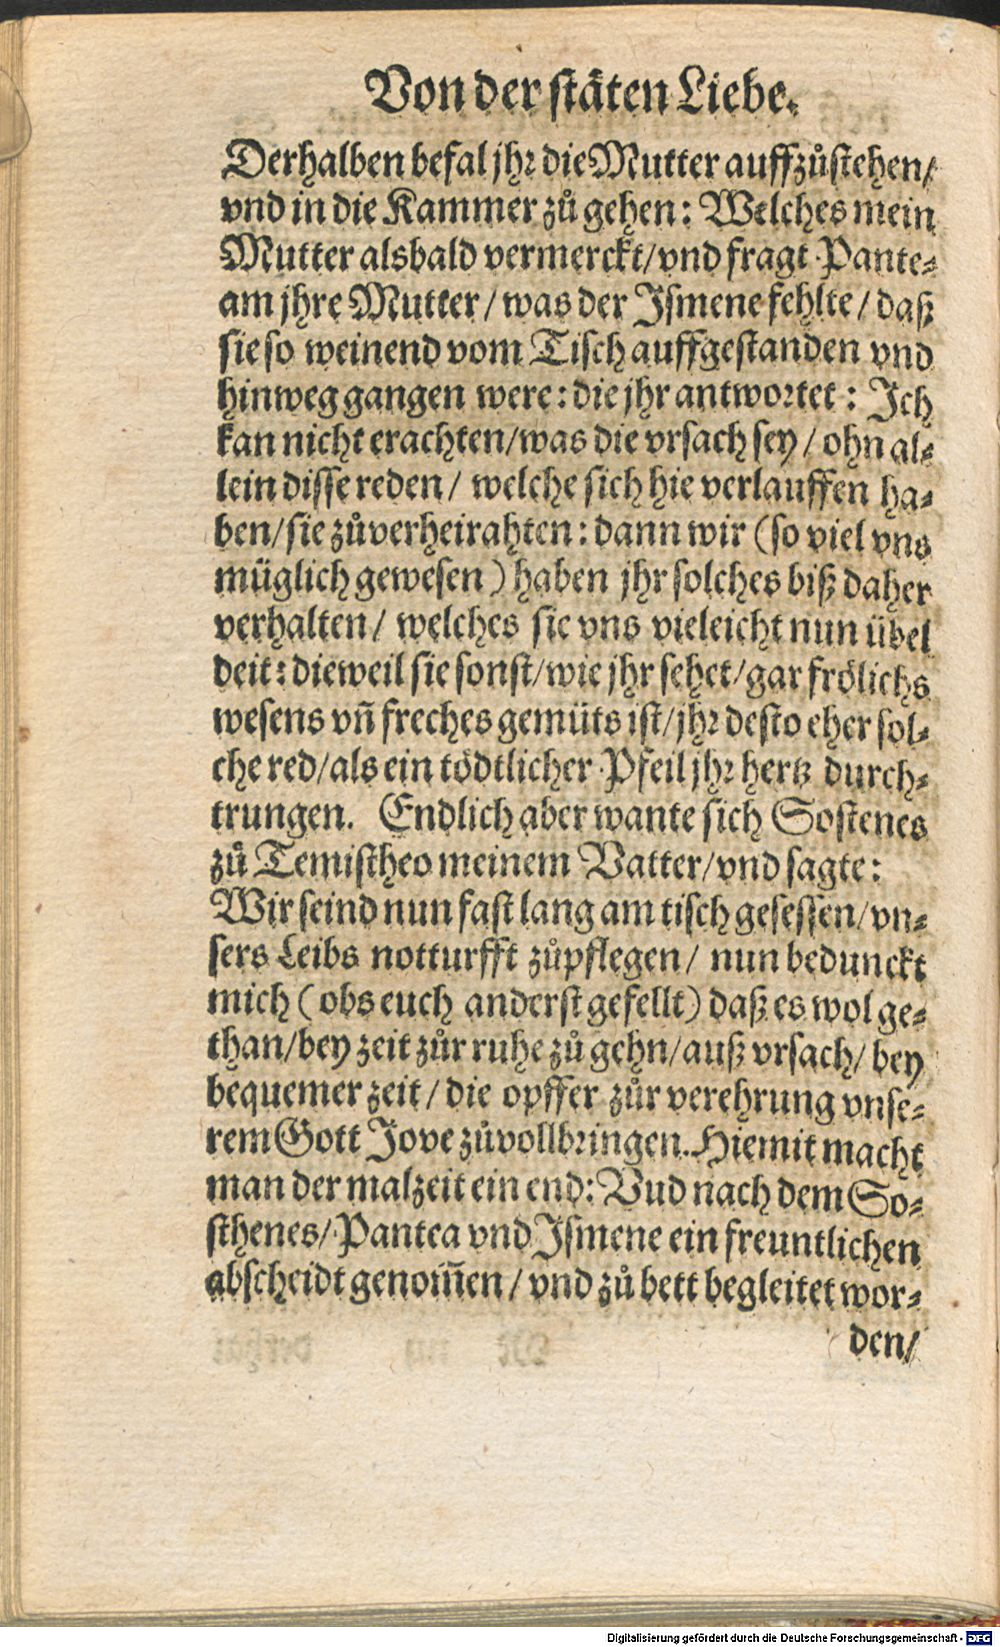 Von der ſtäten Liebe.
Derhalben befal jhꝛ die Mutter auffzůſtehen/
vnd in die Kammer zů gehen: Welches mein
Mutter alsbald vermerckt/vnd fragt Pante-
am jhre Mutter / was der Iſmene fehlte / daß
ſie ſo weinend vom Tiſch auffgeſtanden vnd
hinweg gangen were: die jhr antwoꝛtet: Ich
kan nicht erachten/was die vrſach ſey / ohn al-
lein diſſe reden / welche ſich hie verlauffen ha-
ben/ſie zůverheirahten: dann wir (ſo viel vns
müglich geweſen) haben jhr ſolches biß daher
verhalten / welches ſie vns vieleicht nun übel
deit: dieweil ſie ſonſt/wie jhr ſehet/gar frölichs
weſens vñ freches gemüts iſt/jhꝛ deſto eher ſol-
che red/als ein tödtlicher Pfeil jhꝛ hertz durch-
trungen. Endlich aber wante ſich Soſtenes
zů Temiſtheo meinem Vatter/vnd ſagte:
Wir ſeind nun faſt lang am tiſch geſeſſen/vn-
ſers Leibs notturfft zůpflegen / nun bedunckt
mich (obs euch anderſt gefellt) daß es wol ge-
than/bey zeit zůr ruhe zů gehn/auß vrſach/ bey
bequemer zeit / die opffer zůr verehrung vnſe-
rem Gott Jove zůvollbꝛingen. Hiemit macht
man der malzeit ein end: Vud nach dem So-
ſthenes/Pantea vnd Iſmene ein freuntlichen
abſcheidt genom̃en / vnd zů bett begleitet wor-
den/
Digitalisierung gefördert durch die Deutsche Forschungsgemeinschaft - DFG